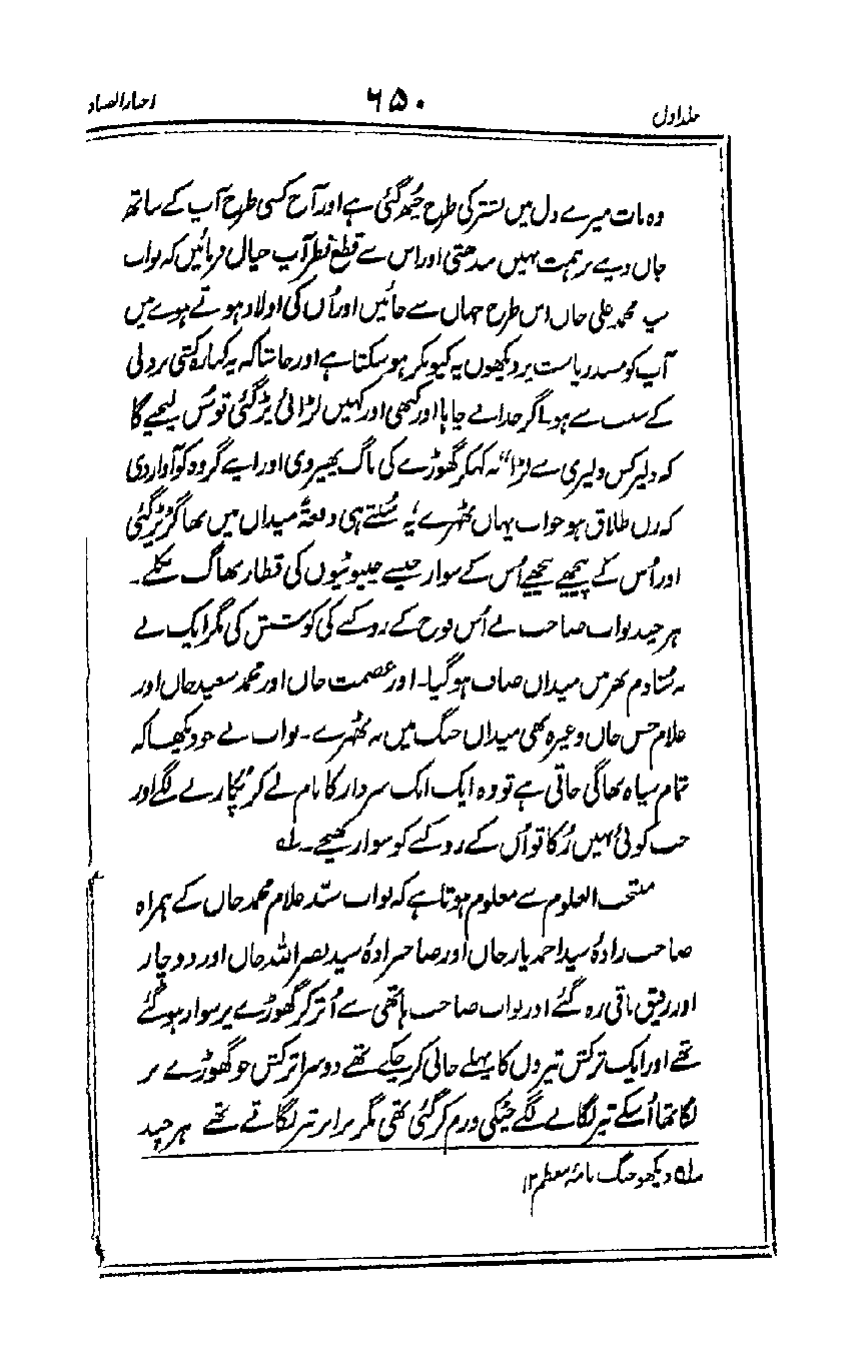 جلد اول ۶۵۰ اخبار الصناد
وہ بات میرے دل میں نشتر کی طرح چبھ گئی ہے اور آج کسی طرح آپ کے ساتھ
جاں دینے پر ہمت نہیں بندھتی اور اس سے قطع نظر آپ خیال فرمائیں کہ نواب
محمد علی خاں اس طرح جہاں سے جائیں اور اُن کی اولاد ہوتے ہوئے میں
آپ کو مسند ریاست پر دیکھوں یہ کیونکر ہو سکتا ہے اور جاننا کہ یہ کنارہ کشی بزدلی
کے سبب سے ہو۔ اگر خدا نے چاہا اور کبھی اور کہیں لڑائی پڑ گئی تو سُن لیجیے گا
کہ دلیر کس دلیری سے لڑا" یہ کہکر گھوڑے کی باگ پھیر دی اور اپنے گروہ کو آواز دی
کہ زن طلاق ہو جو اب یہاں ٹھہرے یہ سُنتے ہی دفعۃً میدان میں بھاگڑ پڑ گئی
اور اُس کے پیچھے پیچھے اُس کے سوار جیسے چیونٹیوں کی قطار بھاگ نکلے۔
ہر چند نواب صاحب نے اُس فوج کے روکنے کی کوشش کی مگر ایک نے
نہ سُنا دم بھر میں میدان صاف ہو گیا۔ اور عصمت خاں اور محمد سعید خاں اور
غلام حسن خاں وغیرہ بھی میدان جنگ میں نہ ٹھہرے۔ نواب نے جو دیکھا کہ
تمام سپاہ بھاگی جاتی ہے تو وہ ایک ایک سردار کا نام لے کر پُکارنے لگے اور
جب کوئی نہیں رُکا تو اُن کے روکنے کو سوار بھیجے۔ ؎۱
منتخب العلوم سے معلوم ہوتا ہے کہ نواب سیّد غلام محمد خاں کے ہمراہ
صاحب زادۂ سید احمد یار خاں اور صاحبزادۂ سید نصر اللہ خاں اور دو چار
اور رفیق باقی رہ گئے اور نواب صاحب ہاتھی سے اُتر کر گھوڑے پر سوار ہو گئے
تھے اور ایک ترکش تیروں کا پہلے خالی کر چکے تھے دوسرا ترکش جو گھوڑے پر
لگا تھا اُسکے تیر لگانے لگے چٹکی ورم کر گئی تھی مگر برابر تیر لگاتے تھے ہر چند
؎۱ دیکھو جنگ نامۂ معظم ۱۲